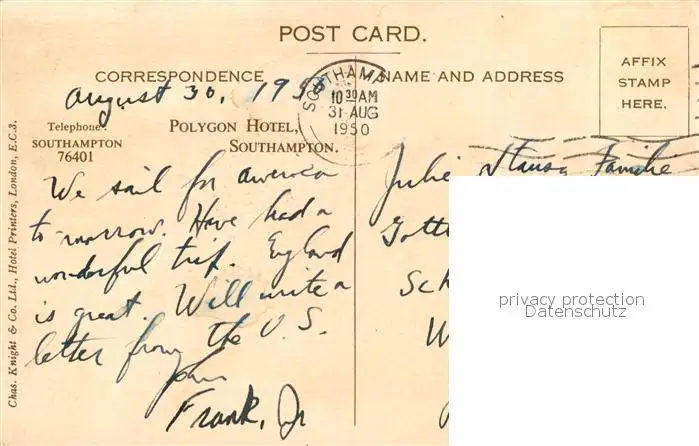 POST CARD.
CORRESPONDENCE
NAME AND ADDRESS
AFFIX
STAMP
HERE.
August 30, 1950
SOUTHAMP
10 30 AM
31 AUG
1950
Telephone:
SOUTHAMPTON
76401
POLYGON HOTEL,
SOUTHAMPTON.
We sail for america
to-morrow. Have had a
wonderful trip. England
is great. Will write a
letter from the U.S.
Frank, Jr
Familie
Gott
Sch
W
privacy protection
Datenschutz
Chas. Knight & Co. Ltd., Hotel Printers, London, E.C.3.